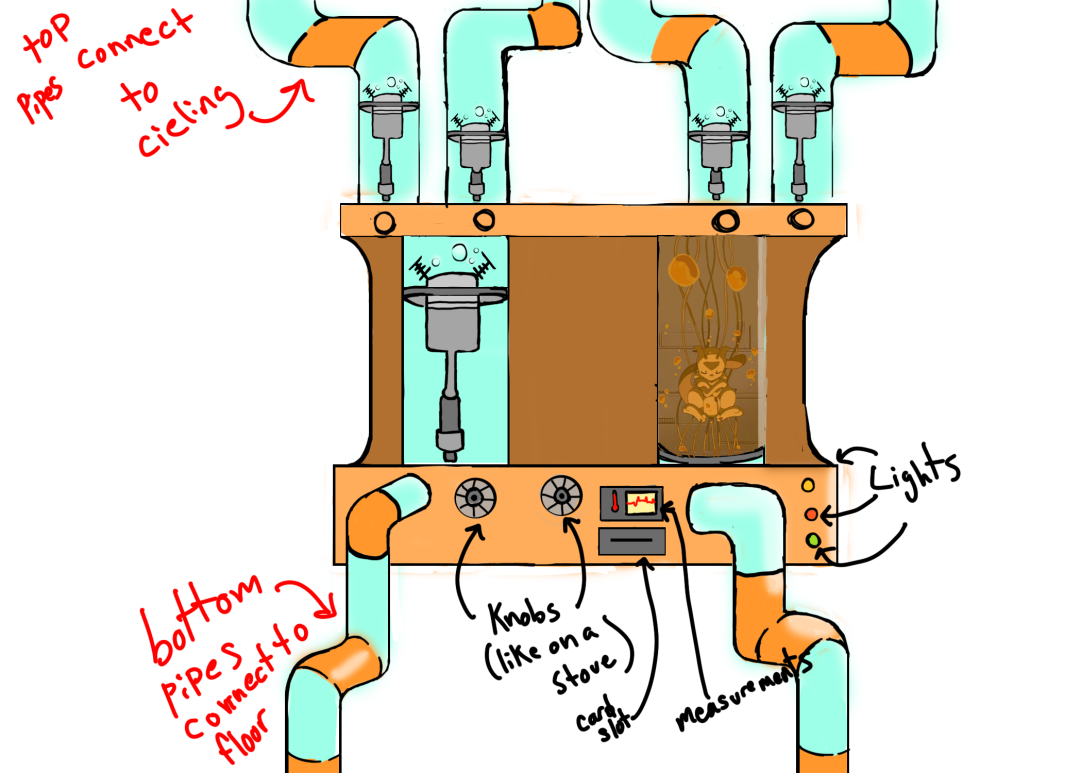 top
pipes connect
to
cieling
Lights
bottom
pipes
connect to
floor
Knobs
(like on a
stove)
card
slot
measurements